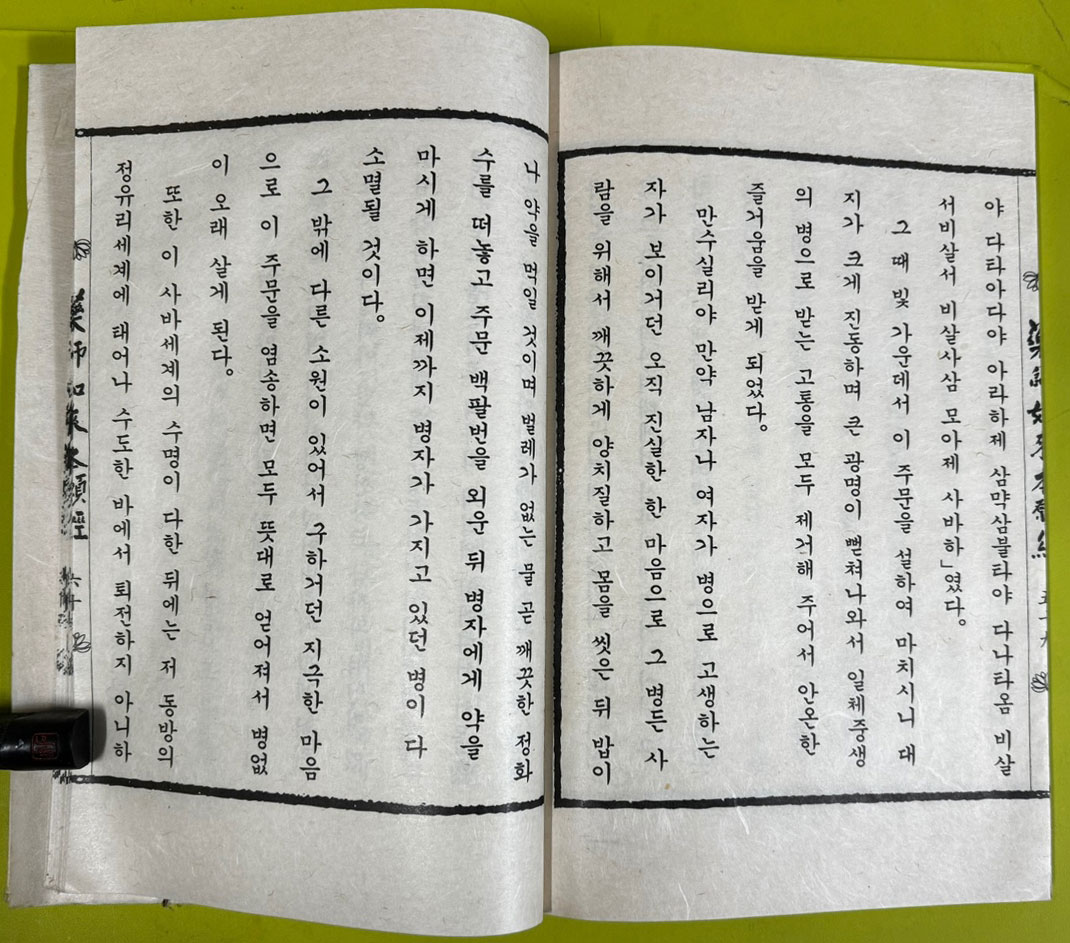 야 다타아다야 아라하제 삼먁삼불타야 다나타옴 비살
서비살서 비살사삼 모아제 사바하」였다。
그 때 빛 가운데서 이 주문을 설하여 마치시니 대
지가 크게 진동하며 큰 광명이 뻗쳐나와서 일체중생
의 병으로 받는 고통을 모두 제거해 주어서 안온한
즐거움을 받게 되었다。
만수실리야 만약 남자나 여자가 병으로 고생하는
자가 보이거던 오직 진실한 한 마음으로 그 병든 사
람을 위해서 깨끗하게 양치질하고 몸을 씻은 뒤 밥이
나 약을 먹일 것이며 벌레가 없는 물 곧 깨끗한 정화
수를 떠놓고 주문 백팔번을 외운 뒤 병자에게 약을
마시게 하면 이제까지 병자가 가지고 있던 병이 다
소멸될 것이다。
그 밖에 다른 소원이 있어서 구하거던 지극한 마음
으로 이 주문을 염송하면 모두 뜻대로 얻어져서 병없
이 오래 살게 된다。
또한 이 사바세계의 수명이 다한 뒤에는 저 동방의
정유리세계에 태어나 수도한 바에서 퇴전하지 아니하
藥師如來本願經 六十